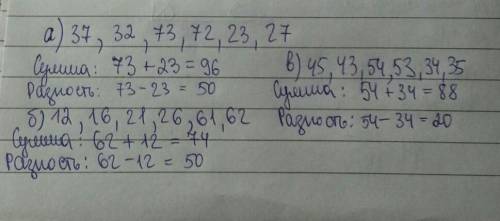 а) 37, 32, 73, 72, 23, 27
Сумма: 73 + 23 = 96
Разность: 73 - 23 = 50
б) 12, 16, 21, 26, 61, 62
Сумма: 62 + 12 = 74
Разность: 62 - 12 = 50
в) 45, 43, 54, 53, 34, 35
Сумма: 54 + 34 = 88
Разность: 54 - 34 = 20